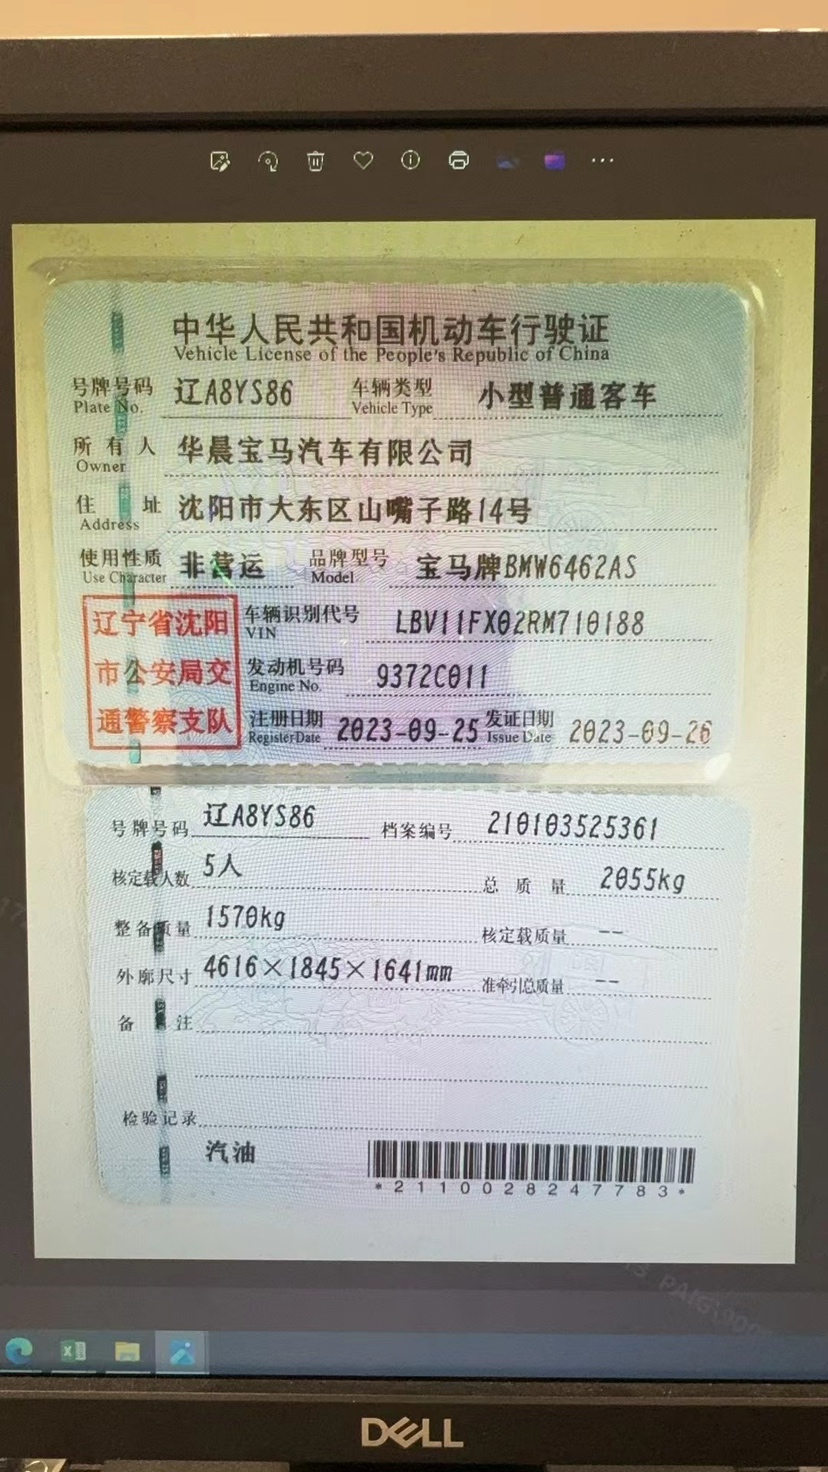 中华人民共和国机动车行驶证
Vehicle License of the People's Republic of China
号牌号码 辽A8YS86 车辆类型 小型普通客车
Plate No. Vehicle Type
所有人 华晨宝马汽车有限公司
Owner
住址 沈阳市大东区山嘴子路14号
Address
使用性质 非营运 品牌型号 宝马牌BMW6462AS
Use Character Model
辽宁省沈阳
市公安局交
通警察支队
车辆识别代号 LBV11FX02RM710188
VIN
发动机号码 9372C011
Engine No.
注册日期 2023-09-25 发证日期 2023-09-26
Register Date Issue Date
号牌号码 辽A8YS86 档案编号 210103525361
核定载人数 5人 总质量 2055kg
整备质量 1570kg 核定载质量 --
外廓尺寸 4616×1845×1641mm 准牵引总质量 --
备注
检验记录
汽油
*2110028247783*
DELL